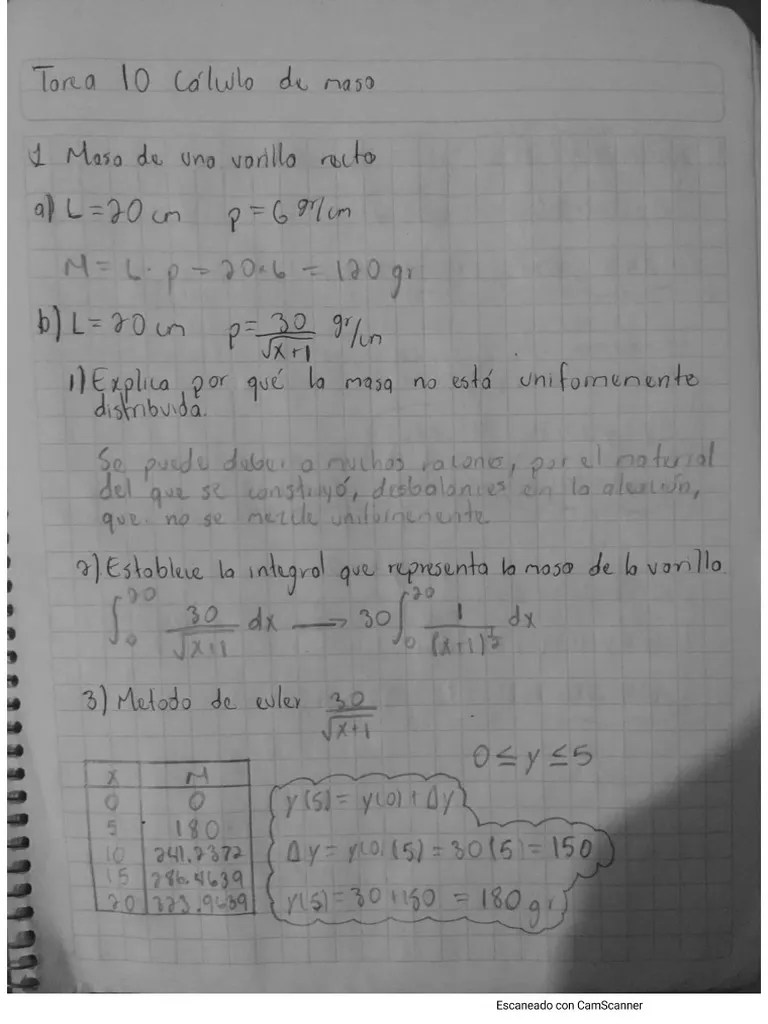 Tarea 10 Cálculo de masa
1 Masa de una varilla recta
a) L=20 cm p=6 gr/cm
M= L· p = 20·6 = 120 gr
b) L=20 cm p= 30/√x+1 gr/cm
1) Explica por qué la masa no está uniformemente
distribuida.
Se puede deber a muchas razones, por el material
del que se construyó, desbalances en la aleación,
que no se mezcle uniformemente
2) Establece la integral que representa la masa de la varilla
∫₀²⁰ 30/√x+1 dx → 30∫₀²⁰ 1/(x+1)^½ dx
3) Metodo de euler 30/√x+1
0≤y≤5
x M
0 0
5 180
10 241.2372
15 286.4639
20 323.9639
y(5)= y(0)+Δy
Δy= y(0)(5) = 30(5) = 150
y(5)= 30+150 = 180 gr
Escaneado con CamScanner